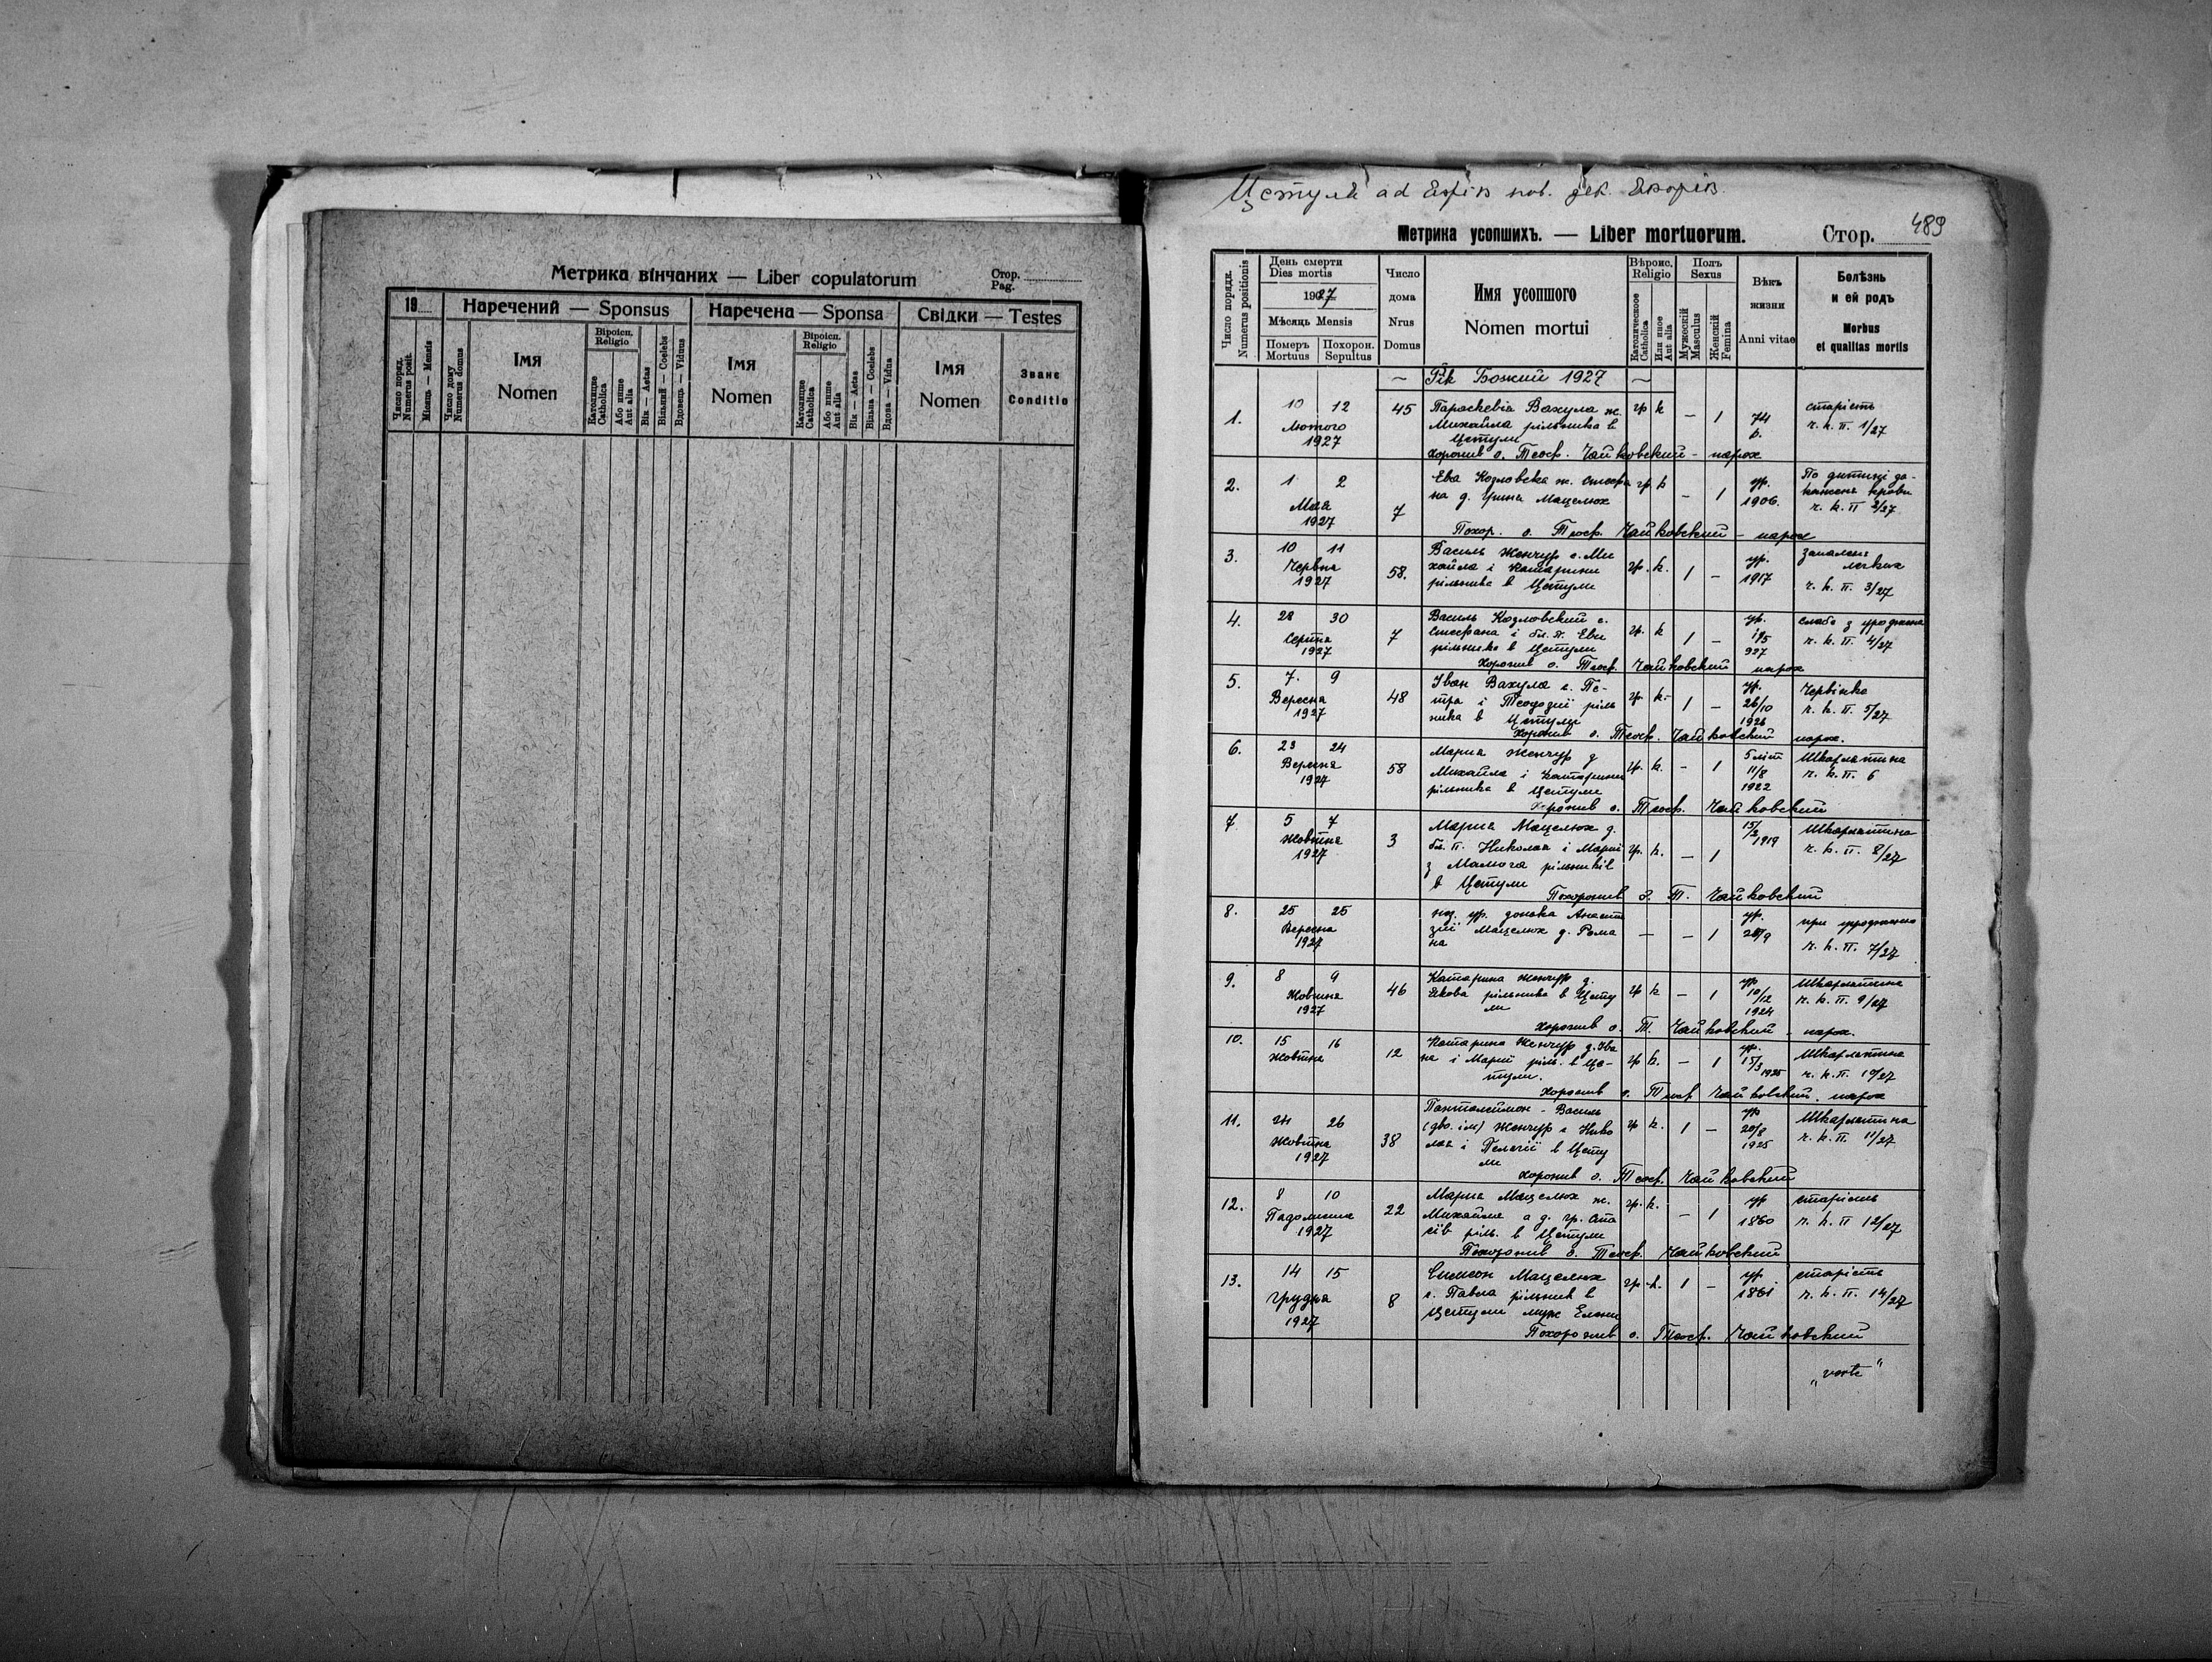 Метрика вінчаних — Liber copulatorum
Стор.
Pag.
19
Наречений — Sponsus
Наречена — Sponsa
Свідки — Testes
Число поряд.
Numerus posit.
Місяць — Mensis
Число дому
Numerus domus
Імя
Nomen
Віроісп.
Religio
Католицке
Catholica
Або инше
Aut alia
Вік — Aetas
Вільний — Coelebs
Вдовець — Viduus
Імя
Nomen
Віроісп.
Religio
Католицке
Catholica
Або инше
Aut alia
Вік — Aetas
Вільна — Coelebs
Вдова — Vidua
Імя
Nomen
Званє
Conditio
Цетуля ad
489
Метрика усопшихъ. — Liber mortuorum.
Стор.
Число порядк.
Numerus positionis
День смерти
Dies mortis
1927
Мѣсяць Mensis
Померъ
Mortuus
Похорон.
Sepultus
Число
дома
Nrus
Domus
Имя усопшого
Nomen mortui
Вѣроис.
Religio
Католическое
Catholica
Или иное
Aut alia
Полъ
Sexus
Мужескій
Masculus
Женскій
Femina
Вѣкъ
жизни
Anni vitae
Болѣзнь
и ей родъ
Morbus
et qualitas mortis
— Рік Божий 1927 —
1. 10 12 45 Параскевія Вахула ж. гр к — 1 74 старість
Лютого Михайла рільника в р. ч. к. п. 1/27
1927 Цетули
Хоронив о. Теоф. Чайковский - парох
2. 1 2 Ева Козловска ж. Стефа гр к — 1 ур. По дитинї за-
на д. Гриня Мацелюх 1906. каженє крови
Мая 7 ч. к. п 2/27
1927
Похор. о. Теоф. Чайковский - парох
3. 10 11 Василь Женчур с. Ми ур. запаленє
Червня 58. хайла і Катарини гр. к. 1 — 1917 легких
1927 рільника в Цетули ч. к. п. 3/27
4. 28 30 Василь Козловский с. ур. слабе з уродженя
Серпня 7 Стефана і бл. п. Еви гр. к 1 — 1/5 ч. к. п. 4/27
1927 рільника в Цетули 927
Хоронив о. Теоф. Чайковский парох
5. 7. 9 Іван Вахула с. Пе- ур.
Вересня 48 тра і Теодозиї ріль гр к. 1 — 26/10 Червінка
1927 ника в Цетули 1926 ч. к. п. 5/27
Хоронив о. Теоф. Чайковский парох.
6. 23 24 Мария Женчур д 5 літ Шкарлятина
Вересня 58 Михайла і Катарини гр. к. — 1 11/8 ч. к. п. 6
1927 рільника в Цетули 1922
Хоронив о. Теоф. Чайковский
7 5 7 Мария Мацелюх д. 15/2 Шкарлятина
Жовтня 3 бл. п. Николая і Мариї гр. к. — 1 1919 ч. к. п. 8/27
1927 з рільників
в Цетули
Похоронив о. Т. Чайковский
8. 25 25 донька Анаста ур. при уродженю
Вересня зиї Мацелюх д. Рома — — 1 ч. к. п. 7/27
1927 на
9. 8 9 Катарина Женчур д. ур Шкарлятина
Жовтня 46 Якова рільника в Цету гр к — 1 10/12 ч. к. п. 9/27
1927 ли 1924
Хоронив о. Т. Чайковский - парох.
10. 15 16 12 Катарина Женчур д. Іва ур.
Жовтня на і Мариї ріль. в Це- гр к. — 1 15/3 1925 Шкарлятина
тули. ч. к. п. 10/27
Хоронив о. Теоф. Чайковский. парох
11. 24 26 Панталеймон - Василь ур
Жовтня 38 (дво. ім) Женчур с Нико гр к. 1 — 20/8 Шкарлятина
1927 лая і Пелагії в Цету 1925 ч. к. п. 11/27
ли
Хоронив о. Теоф. Чайковский
12. 8 10 Мария Мацелюх ж. гр. к. ур старість
Падолиста 22 Михайла а д. гр. Ста — 1 1860 ч. к. п 12/27
1927 сїв ріль. в Цетули
Похоронив о. Теоф. Чайковский
13. 14 15 Симеон Мацелюх гр. к. 1 — ур старість
грудня 8 с. Павла рільник в 1861 ч. к. п. 14/27
1927 Цетули муж Елени
Похоронив о. Теоф. Чайковский
„verte“